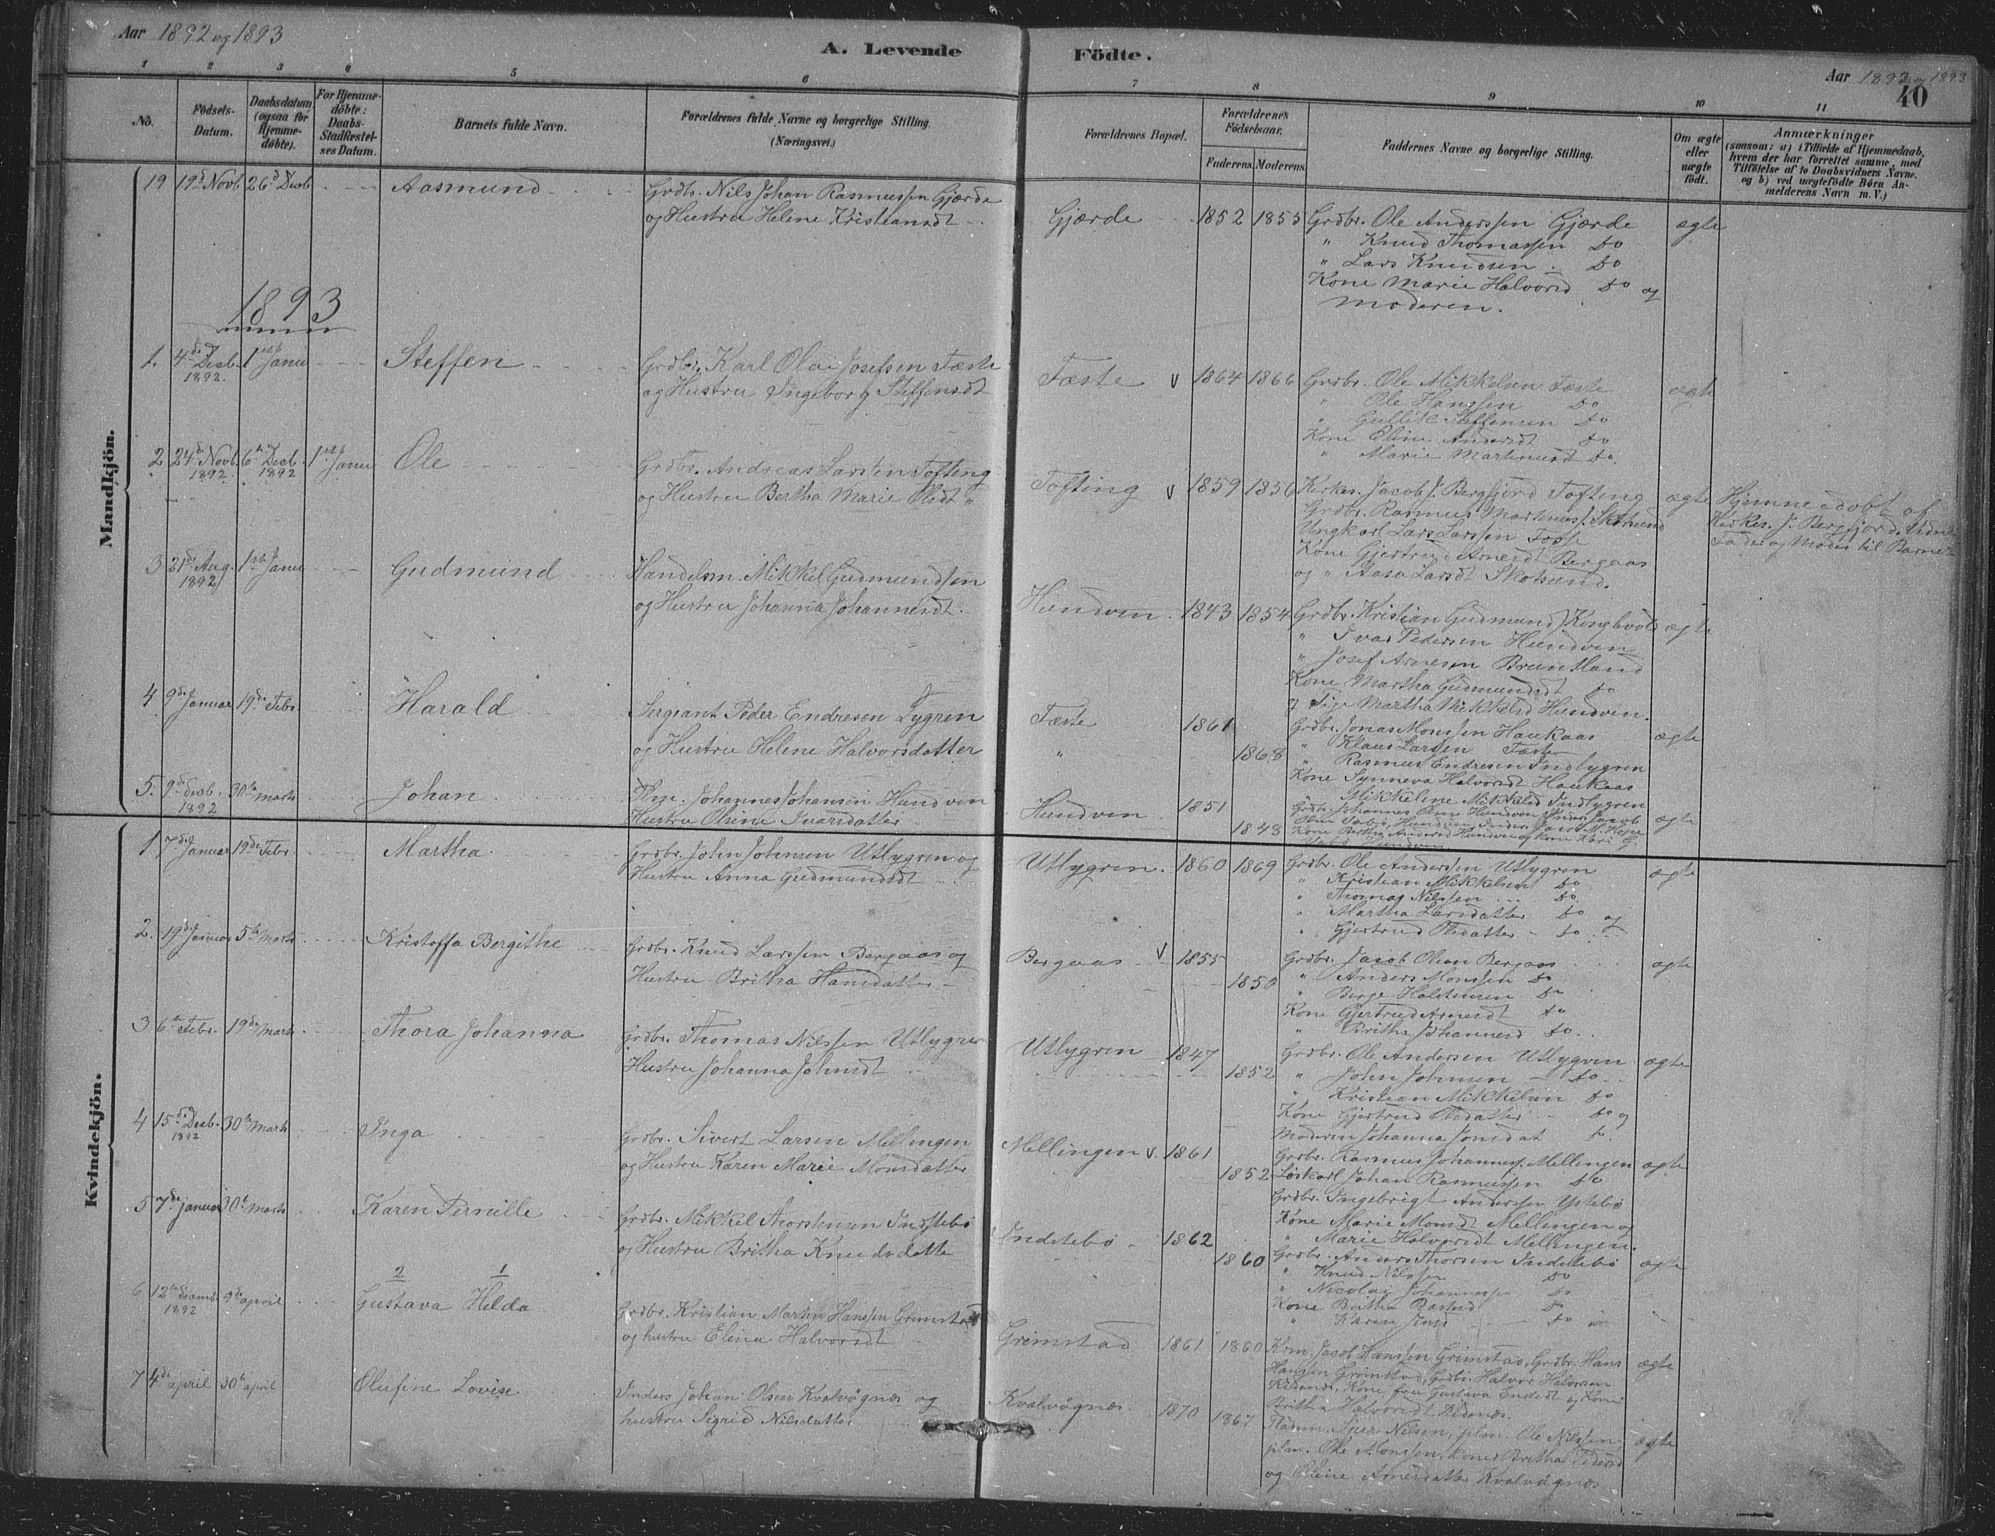 Aar 1892 og 1893
A. Levende Födte.
Aar 1892 og 1893
40
1 2 3 4 5 6 7 8 9 10 11
No.
Födsels-Datum.
Daabsdatum (ogsaa for Hjemmedöbte).
For Hjemmedöbte: Daabs-Stadfæstelses Datum.
Barnets fulde Navn.
Forældrenes fulde Navne og borgerlige Stilling. (Næringsvei.)
Forældrenes Bopæl.
Forældrenes Födselsaar.
Faderens. Moderens.
Faddernes Navne og borgerlige Stilling.
Om ægte eller uægte födt.
Anmærkninger
(saasom: a) i Tilfælde af Hjemmedaab, hvem der har forrettet samme, med Tilföielse af to Daabsvidners Navne. og b) ved uægtefödte Börn Anmelderens Navn m. V.)
Mandkjön.
19 19d Novb. 26d Desb. Aasmund
Grdbr. Nils Johan Rasmussen Gjærde
og Hustru Helene Kristiansdt
Gjærde 1852 1855
Grdbr. Ole Anderssen Gjærde
" Knud Thomassen Do
" Lars Knudsen Do
Kone Marie Halvorsd Do og
Moderen.
ægte
1893
1. 4de Desb. 1892. 1ste Janu Steffen
Grdbr. Karl Olai Josefsen Tæste
og Hustru Ingeborg Steffensdt
Tæste v 1864 1866
Grdbr. Ole Mikkelsen Tæste
" Ole Hanssen Do
" Gullik Steffensen Do
Kone Eline Andersdt Do
" Marie Martinusd Do.
ægte
2. 24d Novb. 1892 6te Desb. 1892 1ste Janu Ole
Grdbr. Andreas Larsen Tofting
og Hustru Bertha Marie Olsdt "
Tofting v 1859 1856
Kirkes. Jacob J. Bergfjord Tofting
Grdbr. Rasmus Martinuss. Skorsund
Ungkarl Lars Larssen
Kone Gjertrud Arnesdt Bergaas
og " Aasa Larsdt Skotsund.
ægte
Hjemmedöbt af
Kirkes. J. Bergfjord. Vidne
Fader og Moder til Barnet
3 21de Aug. 1892 1ste Janu Gudmund
Handelsm. Mikkel Gudmundsen
og Hustru Johanna Johannesdt.
Hundven. 1843 1854
Grdbr. Kristian Gudmunds. Kongshvol
" Ivar Pedersen Hundven
" Josef Arnesen Bruntland
Kone Martha Gudmundsdt Do
og Pige Martha Mikkelsd Hundven.
ægte
4. 9de Januar 19de Febr. Harald
Sergiant Peder Endresen Lygren
og Hustru Helene Halvorsdatter
Tæste 1861
" 1868
Grdbr. Jonas Monssen Haukaas
" Klaus Larssen Tæste
" Rasmus Endresen Indlygren
Kone Synneva Halvorsdt Haukaas
" Mikkeline Mikkelsd Indlygren
ægte
5. 9de Desb. 1892 30te Marts Johan
Johannes Johansen Hundven
Hustru Olsine Ivarsdatter
Hundven 1851
1848
ægte
Kvindekjön.
1 7de Januar 19de Febr. Martha
Grdbr. John Johnsen Utlygren og
Hustru Anna Gudmundsdt
Utlygren. 1860 1869
Grdbr. Ole Anderssen Utlygren
" Kristian Mikkelsen Do
" Thomas Nilssen Do
" Martha Larsdatter Do og
" Gjertrud Olsdatter - Do
ægte
2. 19de Januar 5te Marts Kristoffa Bergithe
Grdbr. Knud Larssen Bergaas og
Hustru Britha Hansdatter
Bergaas v 1855
1850
Grdbr. Jacob Olsen Bergaas
" Anders Monssen Do
" Berge Halstensen Do
Kone Gjertrud Arnesdt Do
" Britha Johannesd Do
ægte
3 6te Febr. 19de Marts Thora Johanna
Grdbr. Thomas Nilssen Utlygren
Hustru Johanna Johnsdt
Utlygren 1847
1852
Grdbr. Ole Andersen Utlygren
" John Johnsen - Do
" Kristian Mikkelsen Do
Kone Gjertrud Olsdatter Do og
Moderen Johanna Jonsdat
ægte
4 15de Desb. 1892 30te Marts Inga
Grdbr. Sivert Larsen Mellingen
og Hustru Karen Marie Monsdatter
Mellingen v. 1861
1852
Grdbr. Rasmus Johanness. Mellingen
Löskarl Johan Rasmussen Do
Grdbr. Ingebrigt Anderssen Ystebö
Kone Marie Monsdt Mellingen og
" Marie Halvorsdt Mellingen.
ægte
5 7de januar 30te Marts Karen Pernille
Grdbr. Mikkel Thorstensen Indstebö
og Hustru Britha Knudsdatte
Indstebö 1862
1860
Grdbr. Anders Thorsen Indstebö
" Knud Nilssen Do
" Nicolay Johannessen Do
Kone Britha Do
" Karen Do
ægte
6 12te desemb. 1892 9de april 2 1 Gustava Hilda
Grdbr. Kristian Martin Hanssen Grimstad
og hustru Elina Halvorsdt
Grimstad 1861 1860
Jacob Hanssen Grimstad, Grdbr. Hans
Hansen Grimstad, Grdbr. Halvor Halvorsen
Kone Gustava Endresdt og Kone
Britha Halvorsdt
ægte
7 4de april 30te april Olufine Lovise
Inders Johan Olsen Kvalvögnes og
hustru Sigrid Nilsdatter
Kvalvögnes 1870 1867
Nilsen, plm. Ole Nilssen,
plm. Ole Monssen, kone Britha
og Oline Arnesdatter Kvalvögnes
ægte